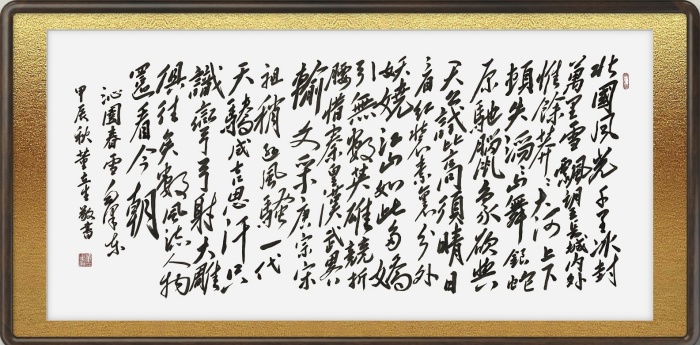 北國風光千里冰封
萬里雪飄望長城內外
惟餘莽莽大河上下
頓失滔滔山舞銀蛇
原馳臘象欲與
天公試比高須晴日
看紅裝素裹分外
妖嬈江山如此多嬌
引無數英雄競折
腰惜秦皇漢武略
輸文采唐宗宋
祖稍遜風騷一代
天驕成吉思汗只
識彎弓射大雕
俱往矣數風流人物
還看今朝
沁園春雪毛澤東
甲辰秋董生敬書